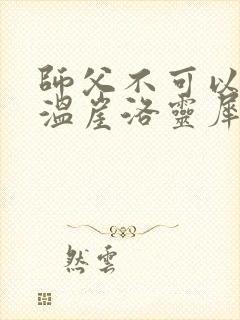 師父不可以
溫崖洛靈犀
然雲